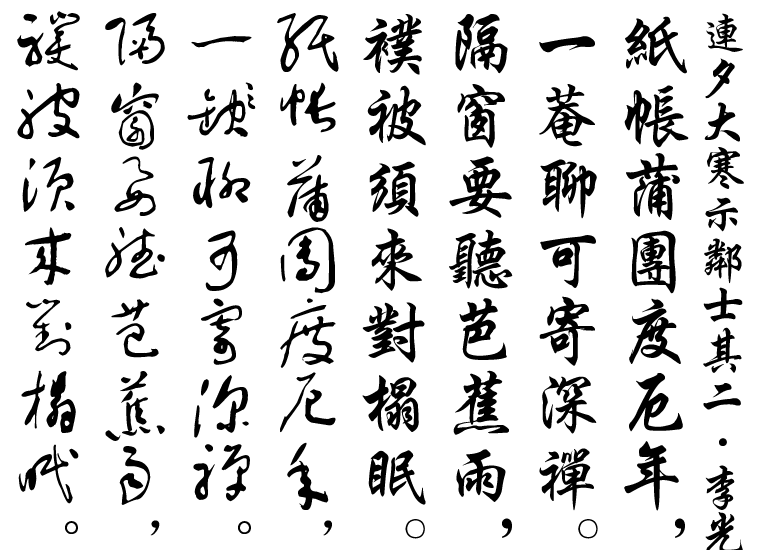 連夕大寒示鄰士其二·李光
紙帳蒲團度厄年,
一菴聊可寄深禪。
隔窗要聽芭蕉雨,
襆被須來對榻眠。
紙帳蒲團度厄年,
一聊可寄深禪。
隔窗要聽芭蕉雨,
襆被須來對榻眠。